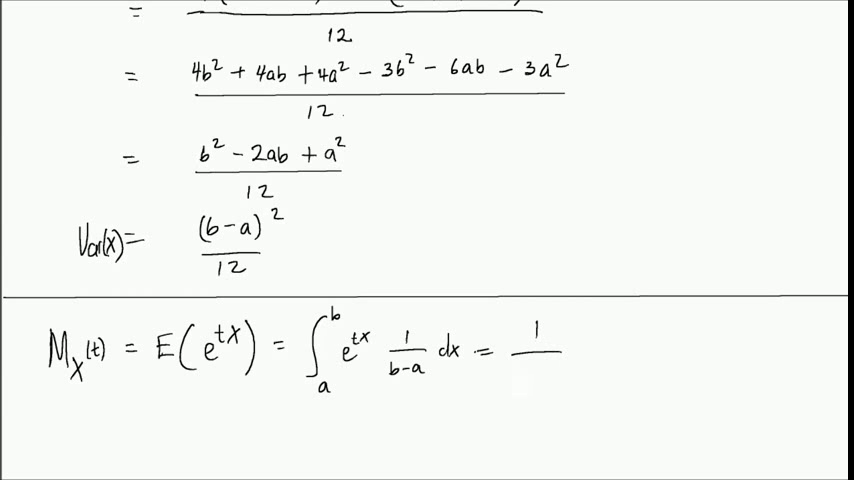 =
12
= 4b² + 4ab + 4a² - 3b² - 6ab - 3a²
12
= b² - 2ab + a²
12
Var(X) = (b-a)²
12
M_X(t) = E(e^{tX}) = ∫_a^b e^{tx} 1/(b-a) dx = 1